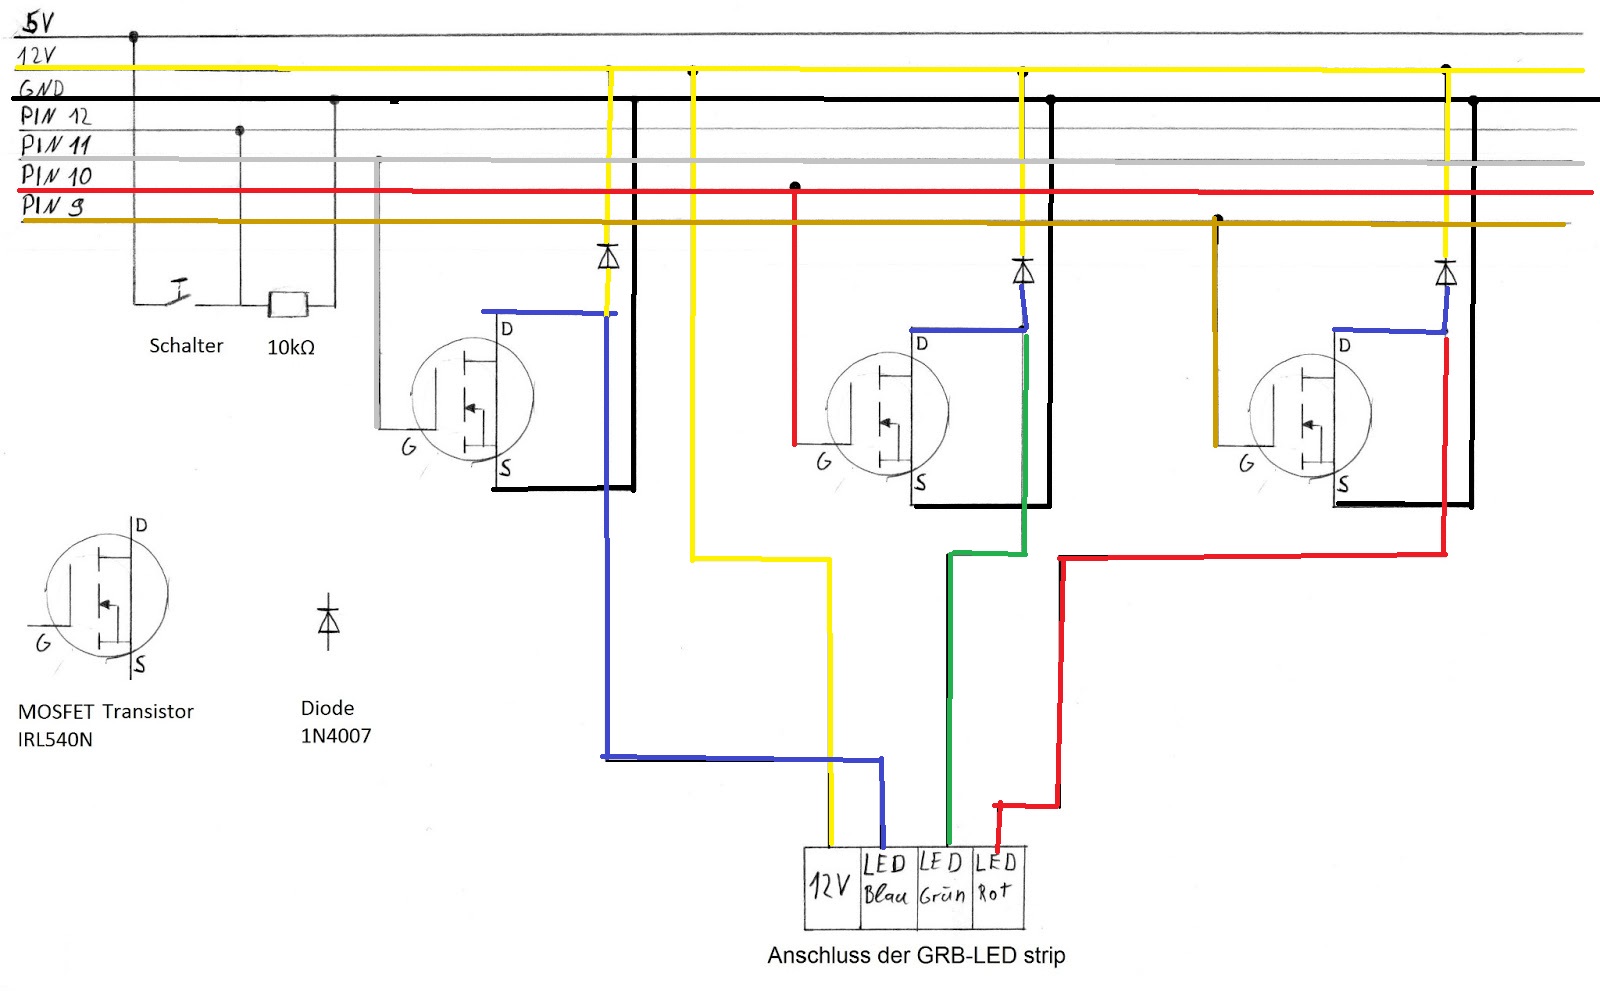 5V
12V
GND
PIN 12
PIN 11
PIN 10
PIN 9
Schalter
10kΩ
D
G
S
D
G
S
D
G
S
D
G
S
MOSFET Transistor
IRL540N
Diode
1N4007
12V
LED
Blau
LED
Grün
LED
Rot
Anschluss der GRB-LED strip